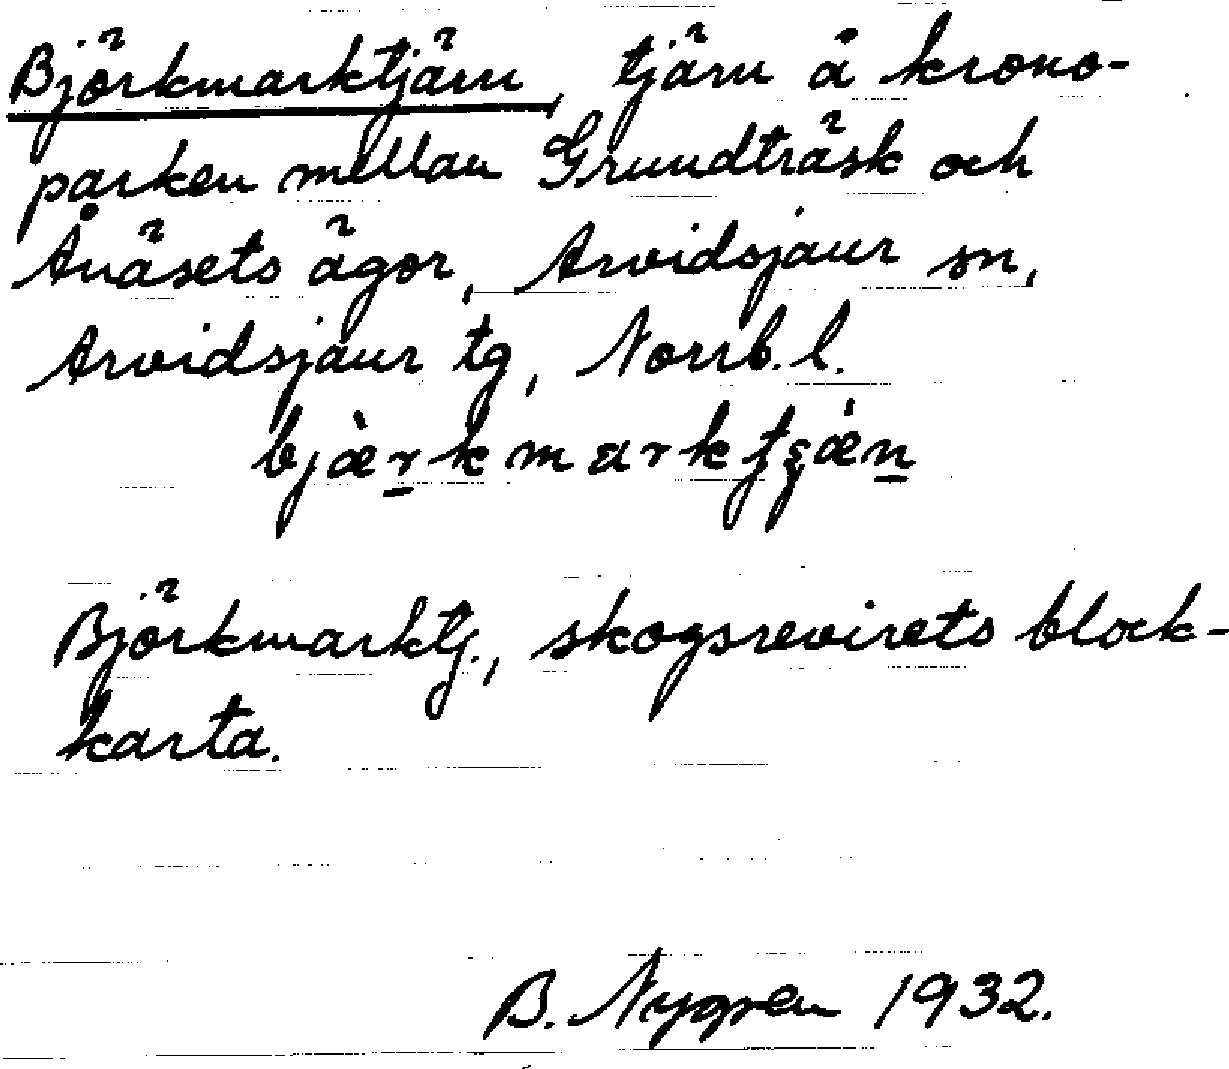 Björkmarktjärn, tjärn å krono-
parken mellan Grundträsk och
Ånäsets ägor, Arvidsjaur sn,
Arvidsjaur tg, Norrb. l.
Björkmarktj., skogsrevirets block-
karta.
B. Nygren 1932.